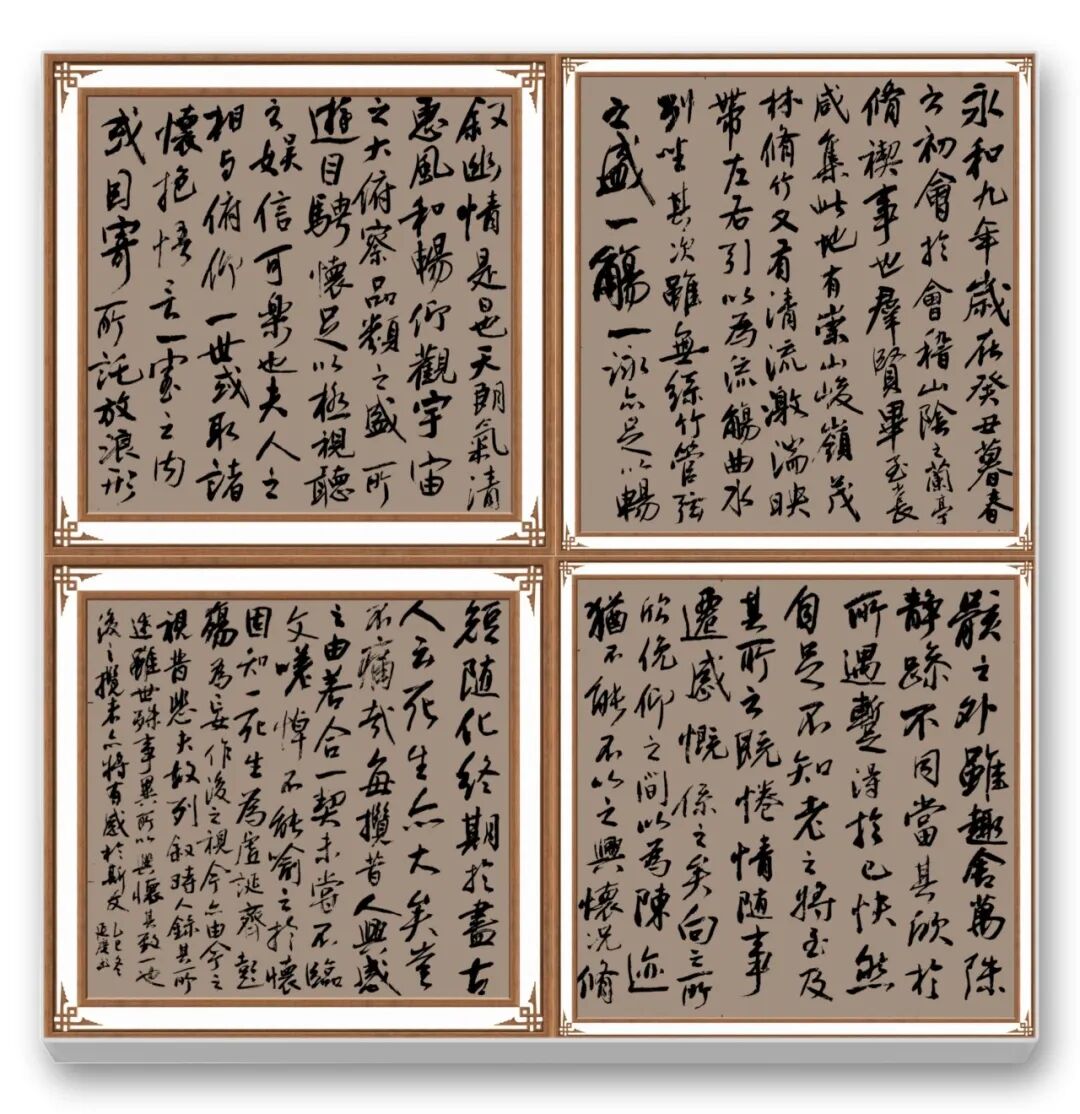 永和九年歲在癸丑暮春
之初會於會稽山陰之蘭亭
脩禊事也羣賢畢至少長
咸集此地有崇山峻嶺茂
林脩竹又有清流激湍映
帶左右引以為流觴曲水
列坐其次雖無絲竹管弦
之盛一觴一詠亦足以暢
叙幽情是日也天朗氣清
惠風和暢仰觀宇宙
之大俯察品類之盛所
遊目騁懷足以極視聽
之娛信可樂也夫人之
相与俯仰一世或取諸
懷抱悟言一室之內
或因寄所託放浪形
骸之外雖趣舍萬殊
静躁不同當其欣於
所遇蹔得於己快然
自足不知老之將至及
其所之既惓情隨事
遷感慨係之矣向之所
欣俛仰之間以為陳迹
猶不能不以之興懷況脩
短隨化終期於盡古
人云死生亦大矣豈
不痛哉每攬昔人興感
之由若合一契未嘗不臨
文嗟悼不能喻之於懷
固知一死生為虛誕齊彭
殤為妄作後之視今亦由今之
視昔悲夫故列叙時人錄其所
述雖世殊事異所以興懷其致一也
後之攬者亦將有感於斯文
乙巳冬